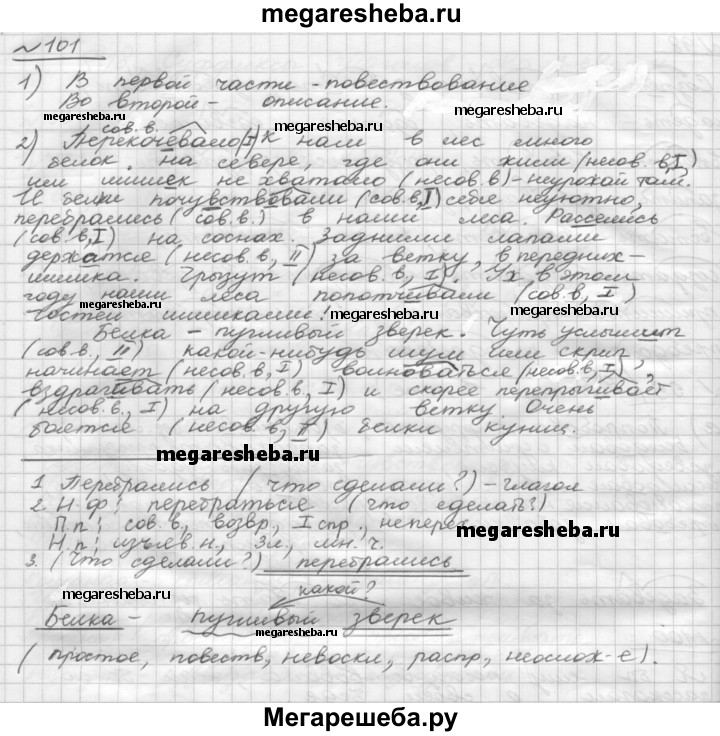 megaresheba.ru
№101
1) В первой части - повествование
Во второй - описание.
megaresheba.ru
megaresheba.ru
сов. в.
2) Перекочевало(I) к нам в лес много
белок. На севере, где они жили (несов. в, I)
им шишек не хватало (несов. в) - неурожай там.
И белки почувствовали (сов. в, I) себе неуютно,
перебрались (сов. в.) в наши леса. Расселись
(сов. в, I) на соснах. Задними лапами
держатся (несов. в, II) за ветку, в передних -
шишка. Грызут (несов. в, I). Ух в этом
году наши леса попотчивали (сов. в, I)
megaresheba.ru
megaresheba.ru
megaresheba.ru
гостей шишками!
Белка - пугливый зверек. Чуть услышит
(сов. в, II) какой-нибудь шум или скрип,
начинает (несов. в, I) волноваться (несов. в, I),
вздрагивать (несов. в, I) и скорее перепрыгивает
(несов. в, I) на другую ветку. Очень
боятся (несов. в, II) белки куниц.
megaresheba.ru
megaresheba.ru
1. Перебрались (что сделали?) - глагол
2. Н.ф: перебраться (что сделать?)
П.п: сов. в, возвр, I спр., неперех
Н.п: изъяв. н., 3л., мн. ч.
megaresheba.ru
3. (Что сделали?) перебрались
megaresheba.ru
какой?
Белка - пугливый зверек
megaresheba.ru
(простое, повеств, невоскл, распр, неослож-е).
Мегарешеба.ру